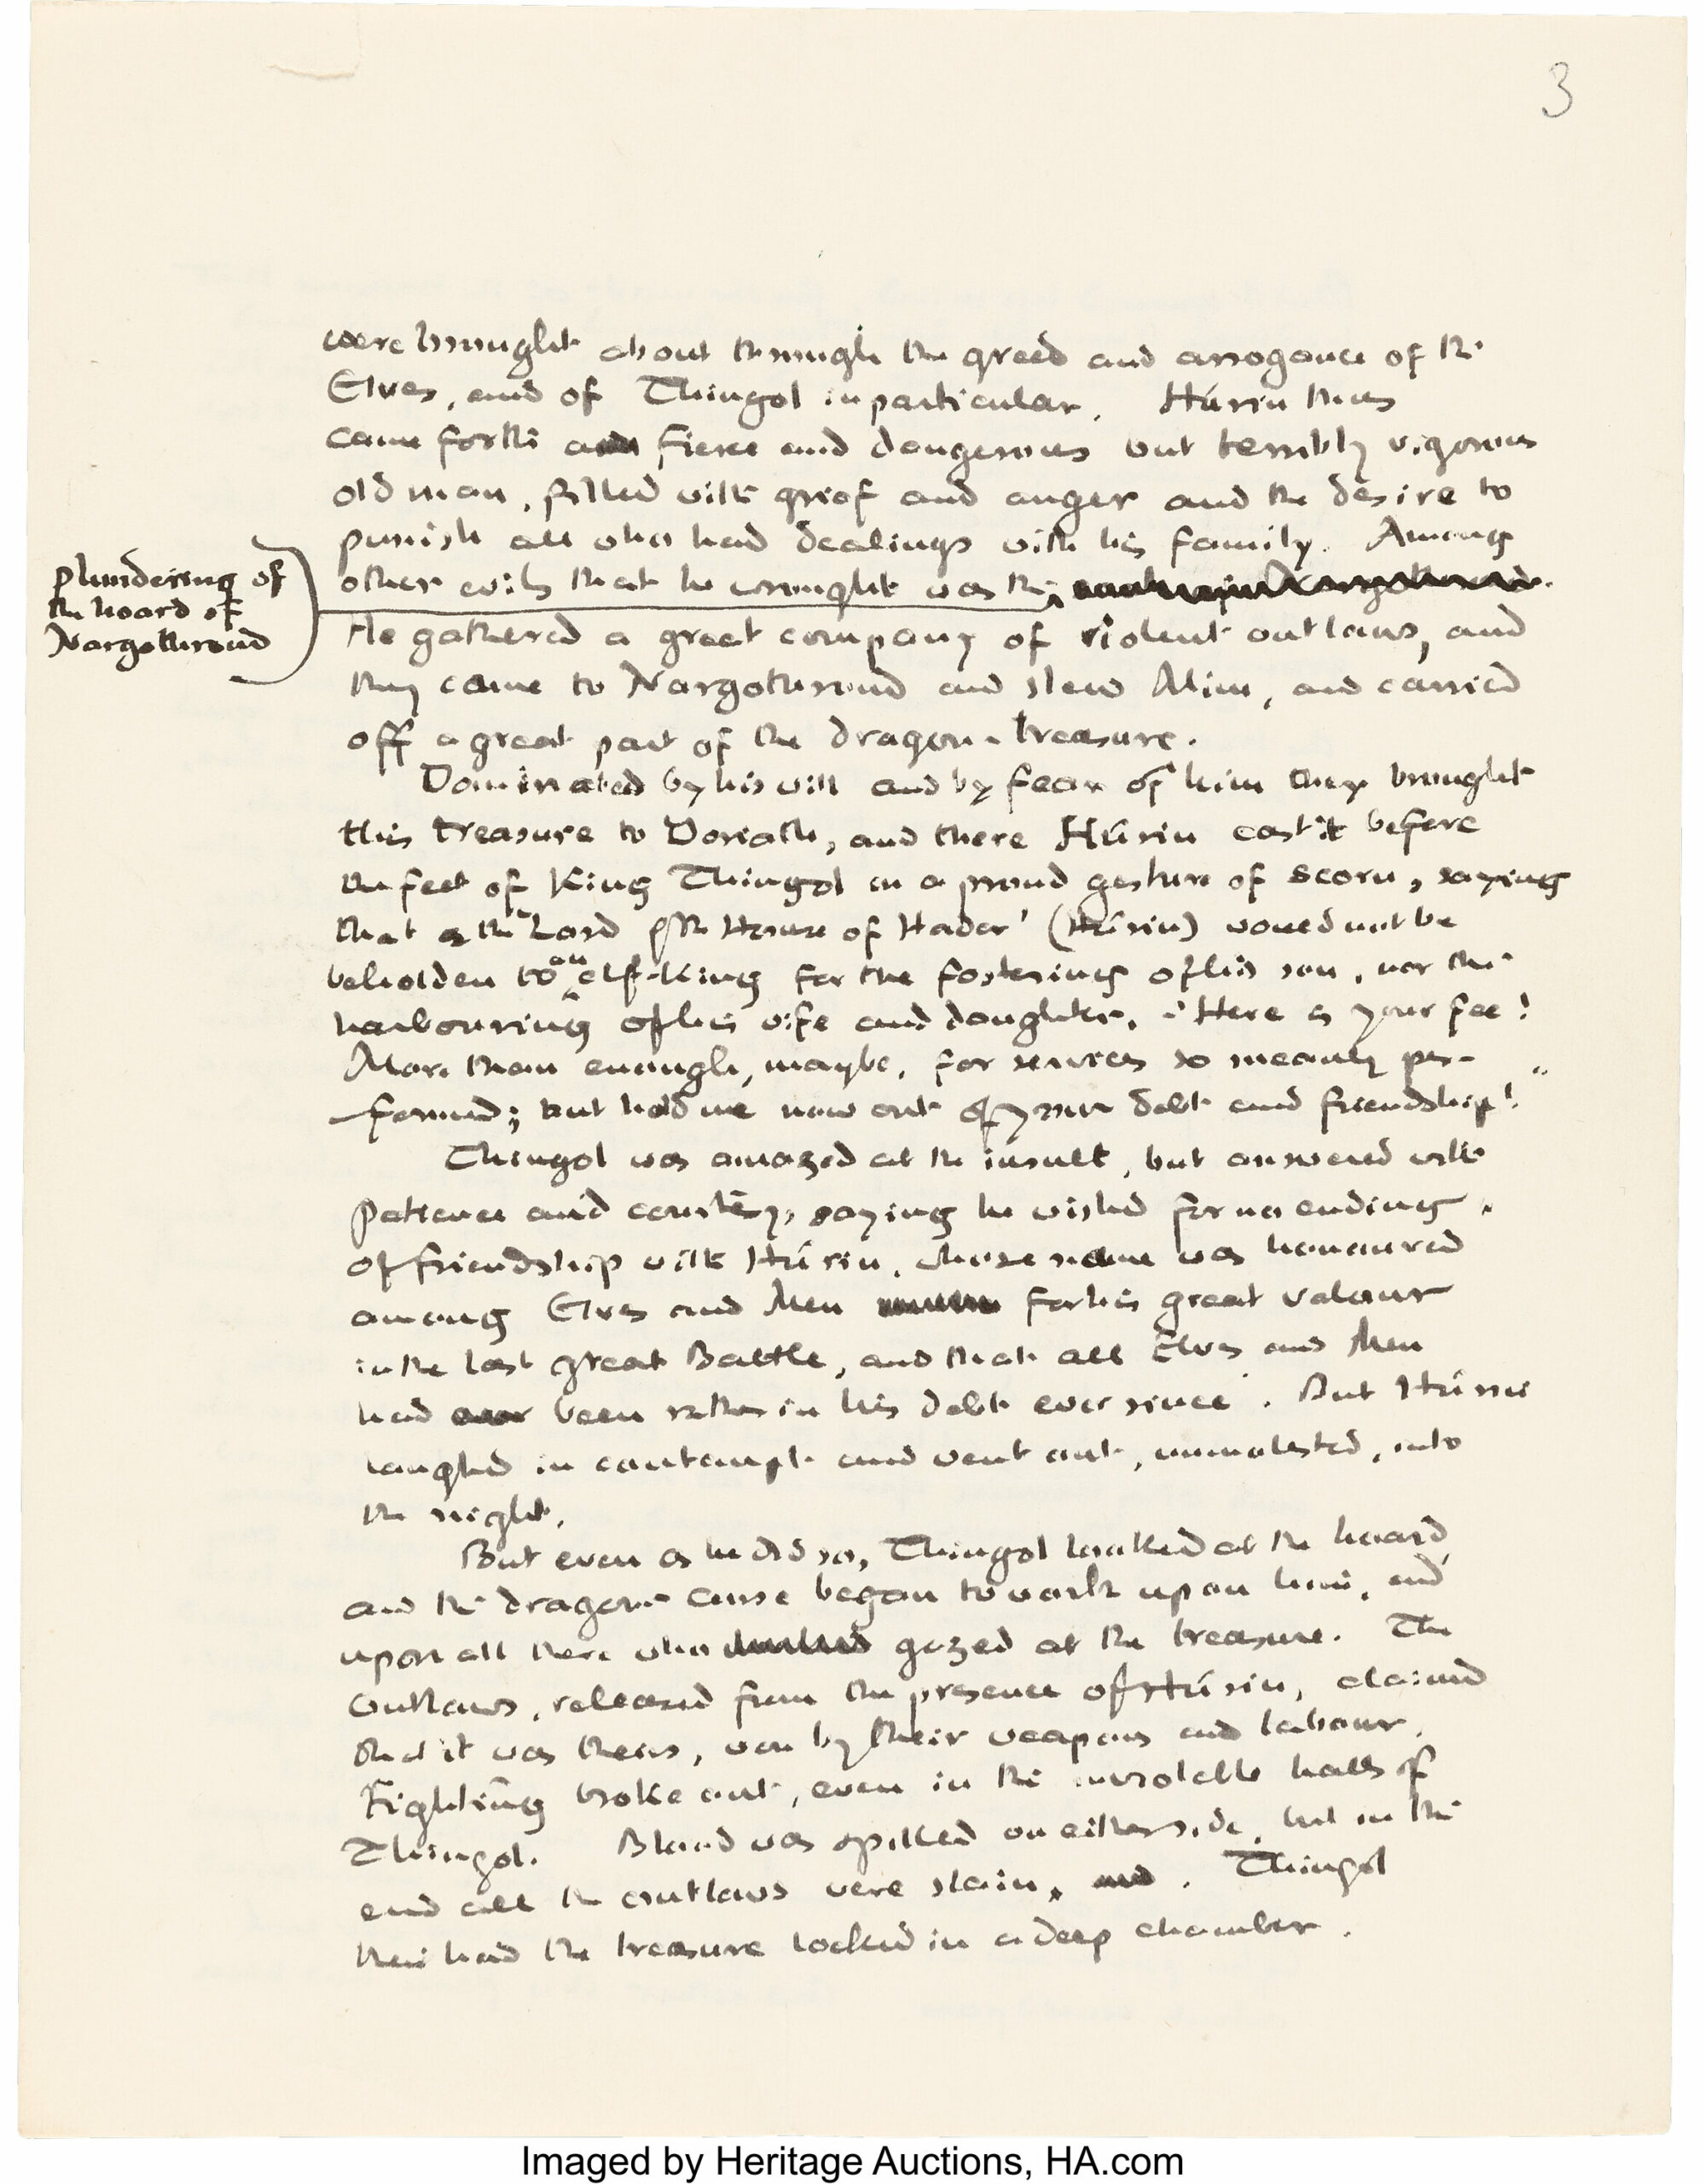 3
were brought about through the greed and arrogance of the
Elves, and of Thingol in particular. Húrin thus
came forth a fierce and dangerous but terribly vigorous
old man, filled with grief and anger and the desire to
punish all who had dealings with his family. Among
other evils that he wrought was the
plundering of
the hoard of
Nargothrond
He gathered a great company of violent outlaws, and
they came to Nargothrond and slew Mîm, and carried
off a great part of the dragon-treasure.
Dominated by his will and by fear of him they brought
this treasure to Doriath, and there Húrin cast it before
the feet of King Thingol in a proud gesture of scorn, saying
that as the 'Lord of the House of Hador' (Húrin) would not be
beholden to an elf-king for the fostering of his son, nor the
harbouring of his wife and daughter. "Here is your fee!
More than enough, maybe, for services so meanly per-
formed; but hold me now out of your debt and friendship!"
Thingol was amazed at the insult, but answered with
patience and courtesy, saying he wished for no ending
of friendship with Húrin, whose name was honoured
among Elves and Men for his great valour
in the last great Battle, and that all Elves and Men
had been rather in his debt ever since. But Húrin
laughed in contempt and went out, unmolested, into
the night.
But even as he did so, Thingol looked at the hoard,
and the dragon-curse began to work upon him, and
upon all there who gazed at the treasure. The
Outlaws, released from the presence of Húrin, claimed
that it was theirs, won by their weapons and labour.
Fighting broke out, even in the inviolable halls of
Thingol. Blood was spilled on either side, but in the
end all the outlaws were slain. Thingol
then had the treasure locked in a deep chamber.
Imaged by Heritage Auctions, HA.com